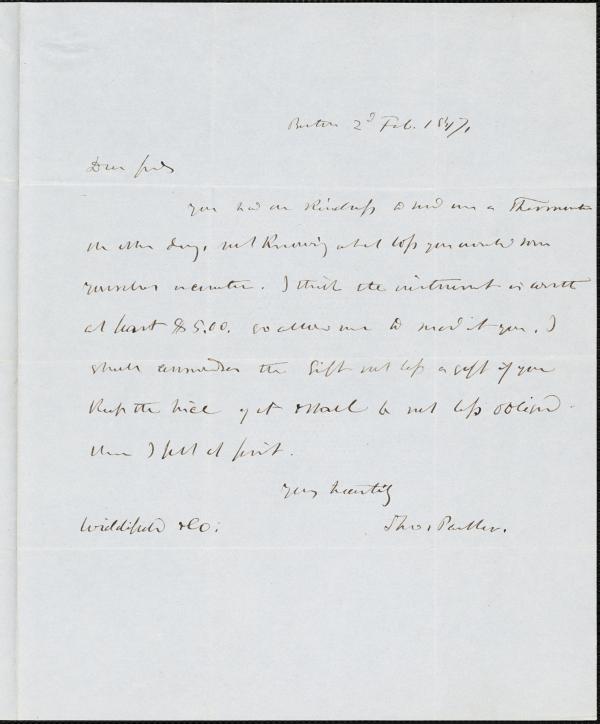 Boston 2d Feb. 1847.
Dear Sirs
You had the Kindness to send me a Thermometer
the other day, not Knowing what loss you would
yourselves encounter. I think the instrument is worth
at least $5.00. so allow me to send it you. I
shall consider the Gift not less a gift if you
Keep the & shall be not less obliged
than I felt at first.
Yours heartily
Widdifield & Co: Theo. Parker.